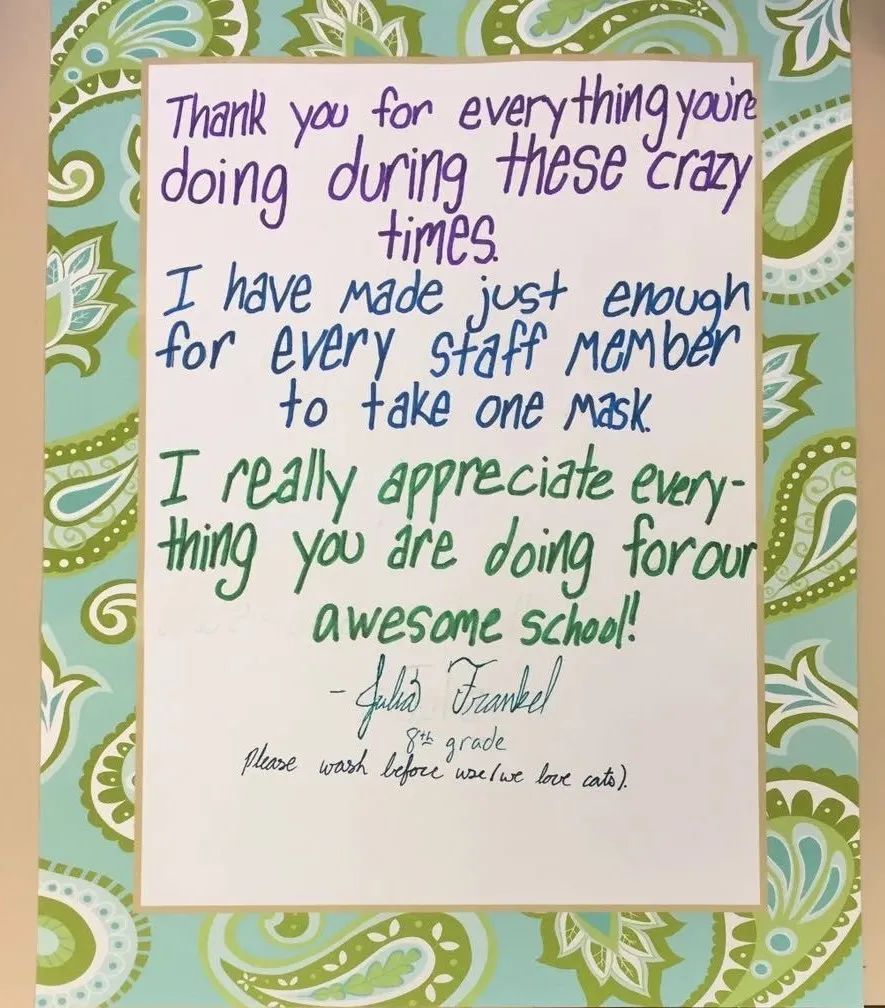 Thank you for everything you're
doing during these crazy
times.
I have made just enough
for every staff member
to take one mask.
I really appreciate every-
thing you are doing for our
awesome school!
- Julia Frankel
8th grade
Please wash before use (we love cats).